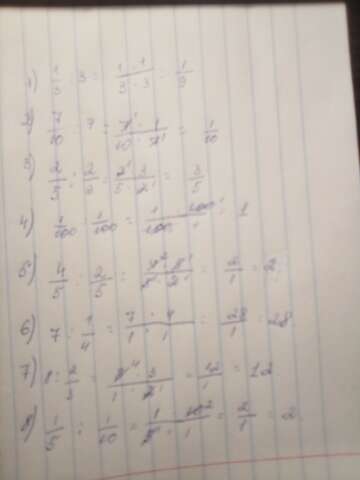 1) 1/3 : 3 = 1 · 1 / 3 · 3 = 1/9
2) 7/10 : 7 = 7¹ · 1 / 10 · 7¹ = 1/10
3) 2/5 : 2/3 = 2¹ · 3 / 5 · 2¹ = 3/5
4) 1/100 : 1/100 = 1 · 100¹ / 100 · 1 = 1
5) 4/5 : 2/5 = 4² · 5¹ / 5¹ · 2¹ = 2/1 = 2
6) 7 : 1/4 = 7 · 4 / 1 · 1 = 28/1 = 28
7) 8 : 2/3 = 8⁴ · 3 / 1 · 2¹ = 12/1 = 12
8) 1/5 : 1/10 = 1 · 10² / 5 · 1 = 2/1 = 2